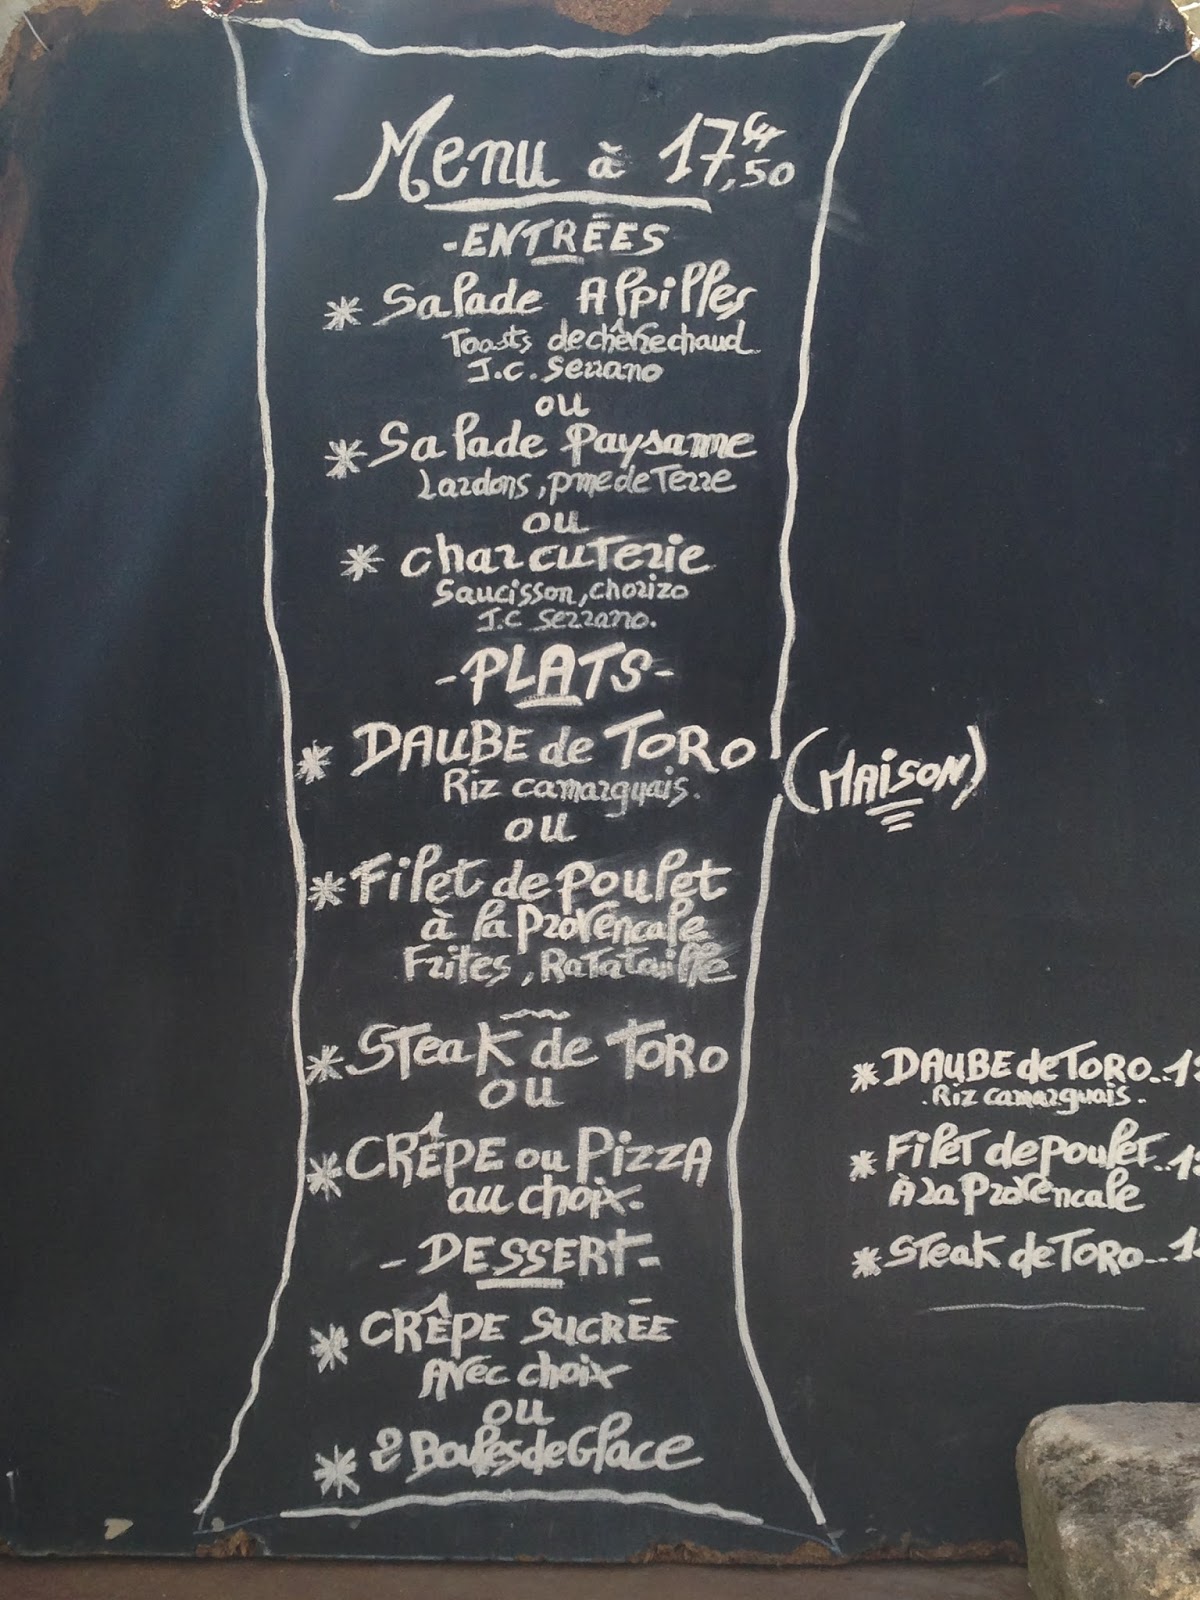 Menu à 17€,50
-ENTRÉES
* Salade Alpilles
Toasts de chèvre chaud
J.C. Serrano
ou
* Salade Paysanne
Lardons, pme de Terre
ou
* Charcuterie
Saucisson, chorizo
J.C Serrano.
-PLATS-
* DAUBE de TORO (MAISON)
Riz camarguais.
ou
* Filet de poulet
à la provençale
Frites, Ratatouille
* Steak de TORO
ou
* CRÊPE ou Pizza
au choix.
- DESSERT-
* CRÊPE SUCRÉE
Avec choix
ou
* 2 Boules de Glace
* DAUBE de TORO..
. Riz camarguais .
* Filet de poulet..
À la Provencale
* Steak de TORO...